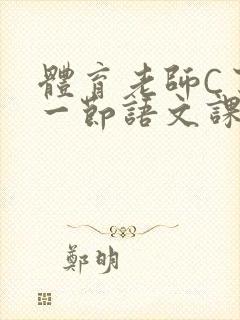 體育老師C
一節語文課
鄭明